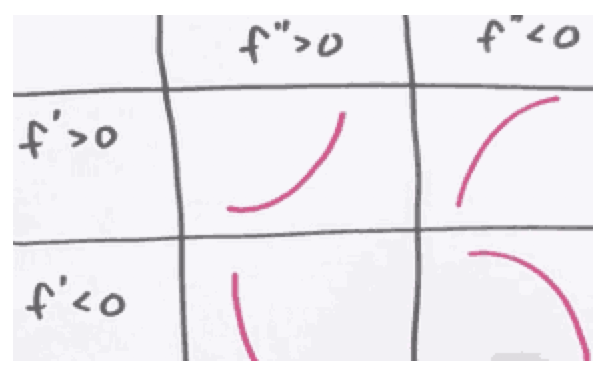 f">0
f"<0
f'>0
f'<0